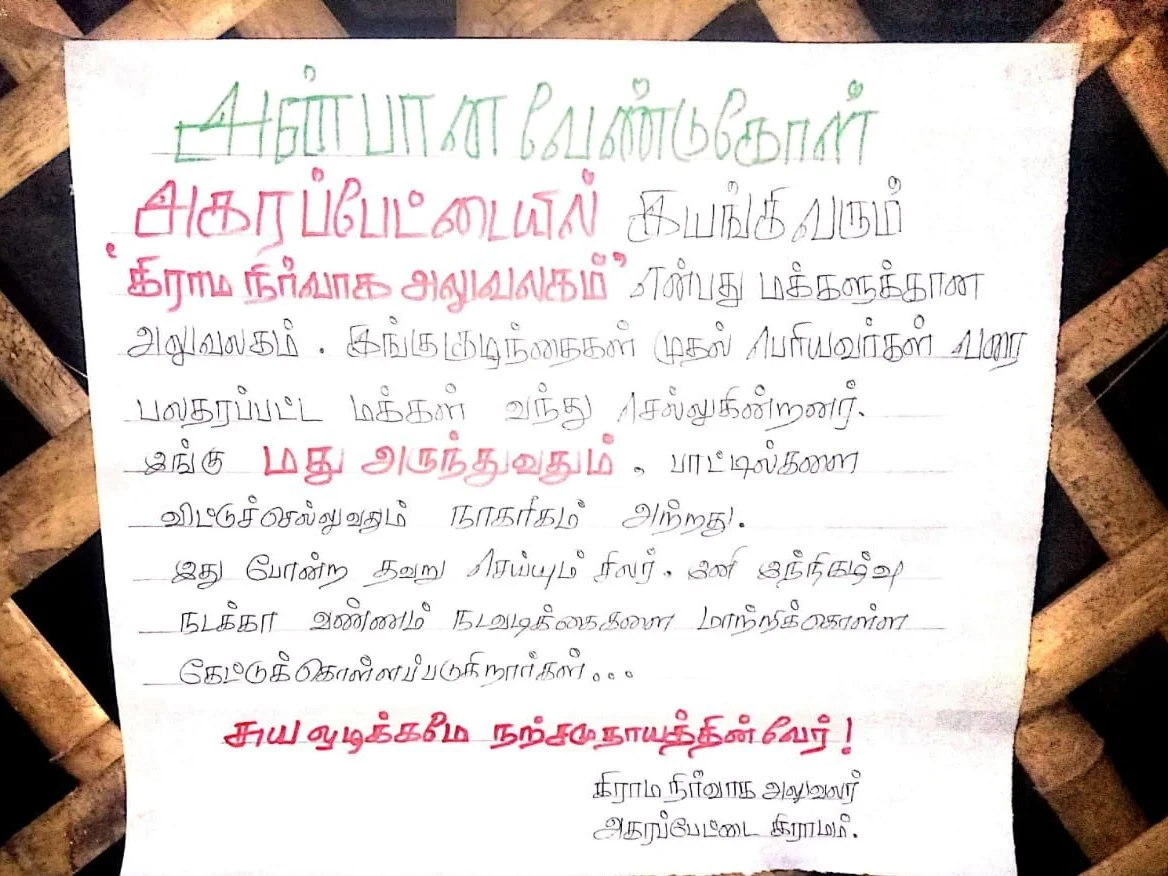 அன்பான வேண்டுகோள்
அகரப்பேட்டையில் இயங்கி வரும்
'கிராம நிர்வாக அலுவலகம்' என்பது மக்களுக்கான
அலுவலகம். இங்கு குழந்தைகள் முதல் பெரியவர்கள் வரை
பலதரப்பட்ட மக்கள் வந்து செல்லுகின்றனர்.
இங்கு மது அருந்துவதும், பாட்டில்களை
விட்டுச்செல்லுவதும் நாகரிகம் அற்றது.
இது போன்ற தவறு செய்யும் சிலர், இனி இந்நிகழ்வு
நடக்கா வண்ணம் நடவடிக்கைகளை மாற்றிக்கொள்ள
கேட்டுக்கொள்ளப்படுகிறார்கள்...
சுய ஒழுக்கமே நற்சமுதாயத்தின் வேர்!
கிராம நிர்வாக அலுவலர்
அகரப்பேட்டை கிராமம்.